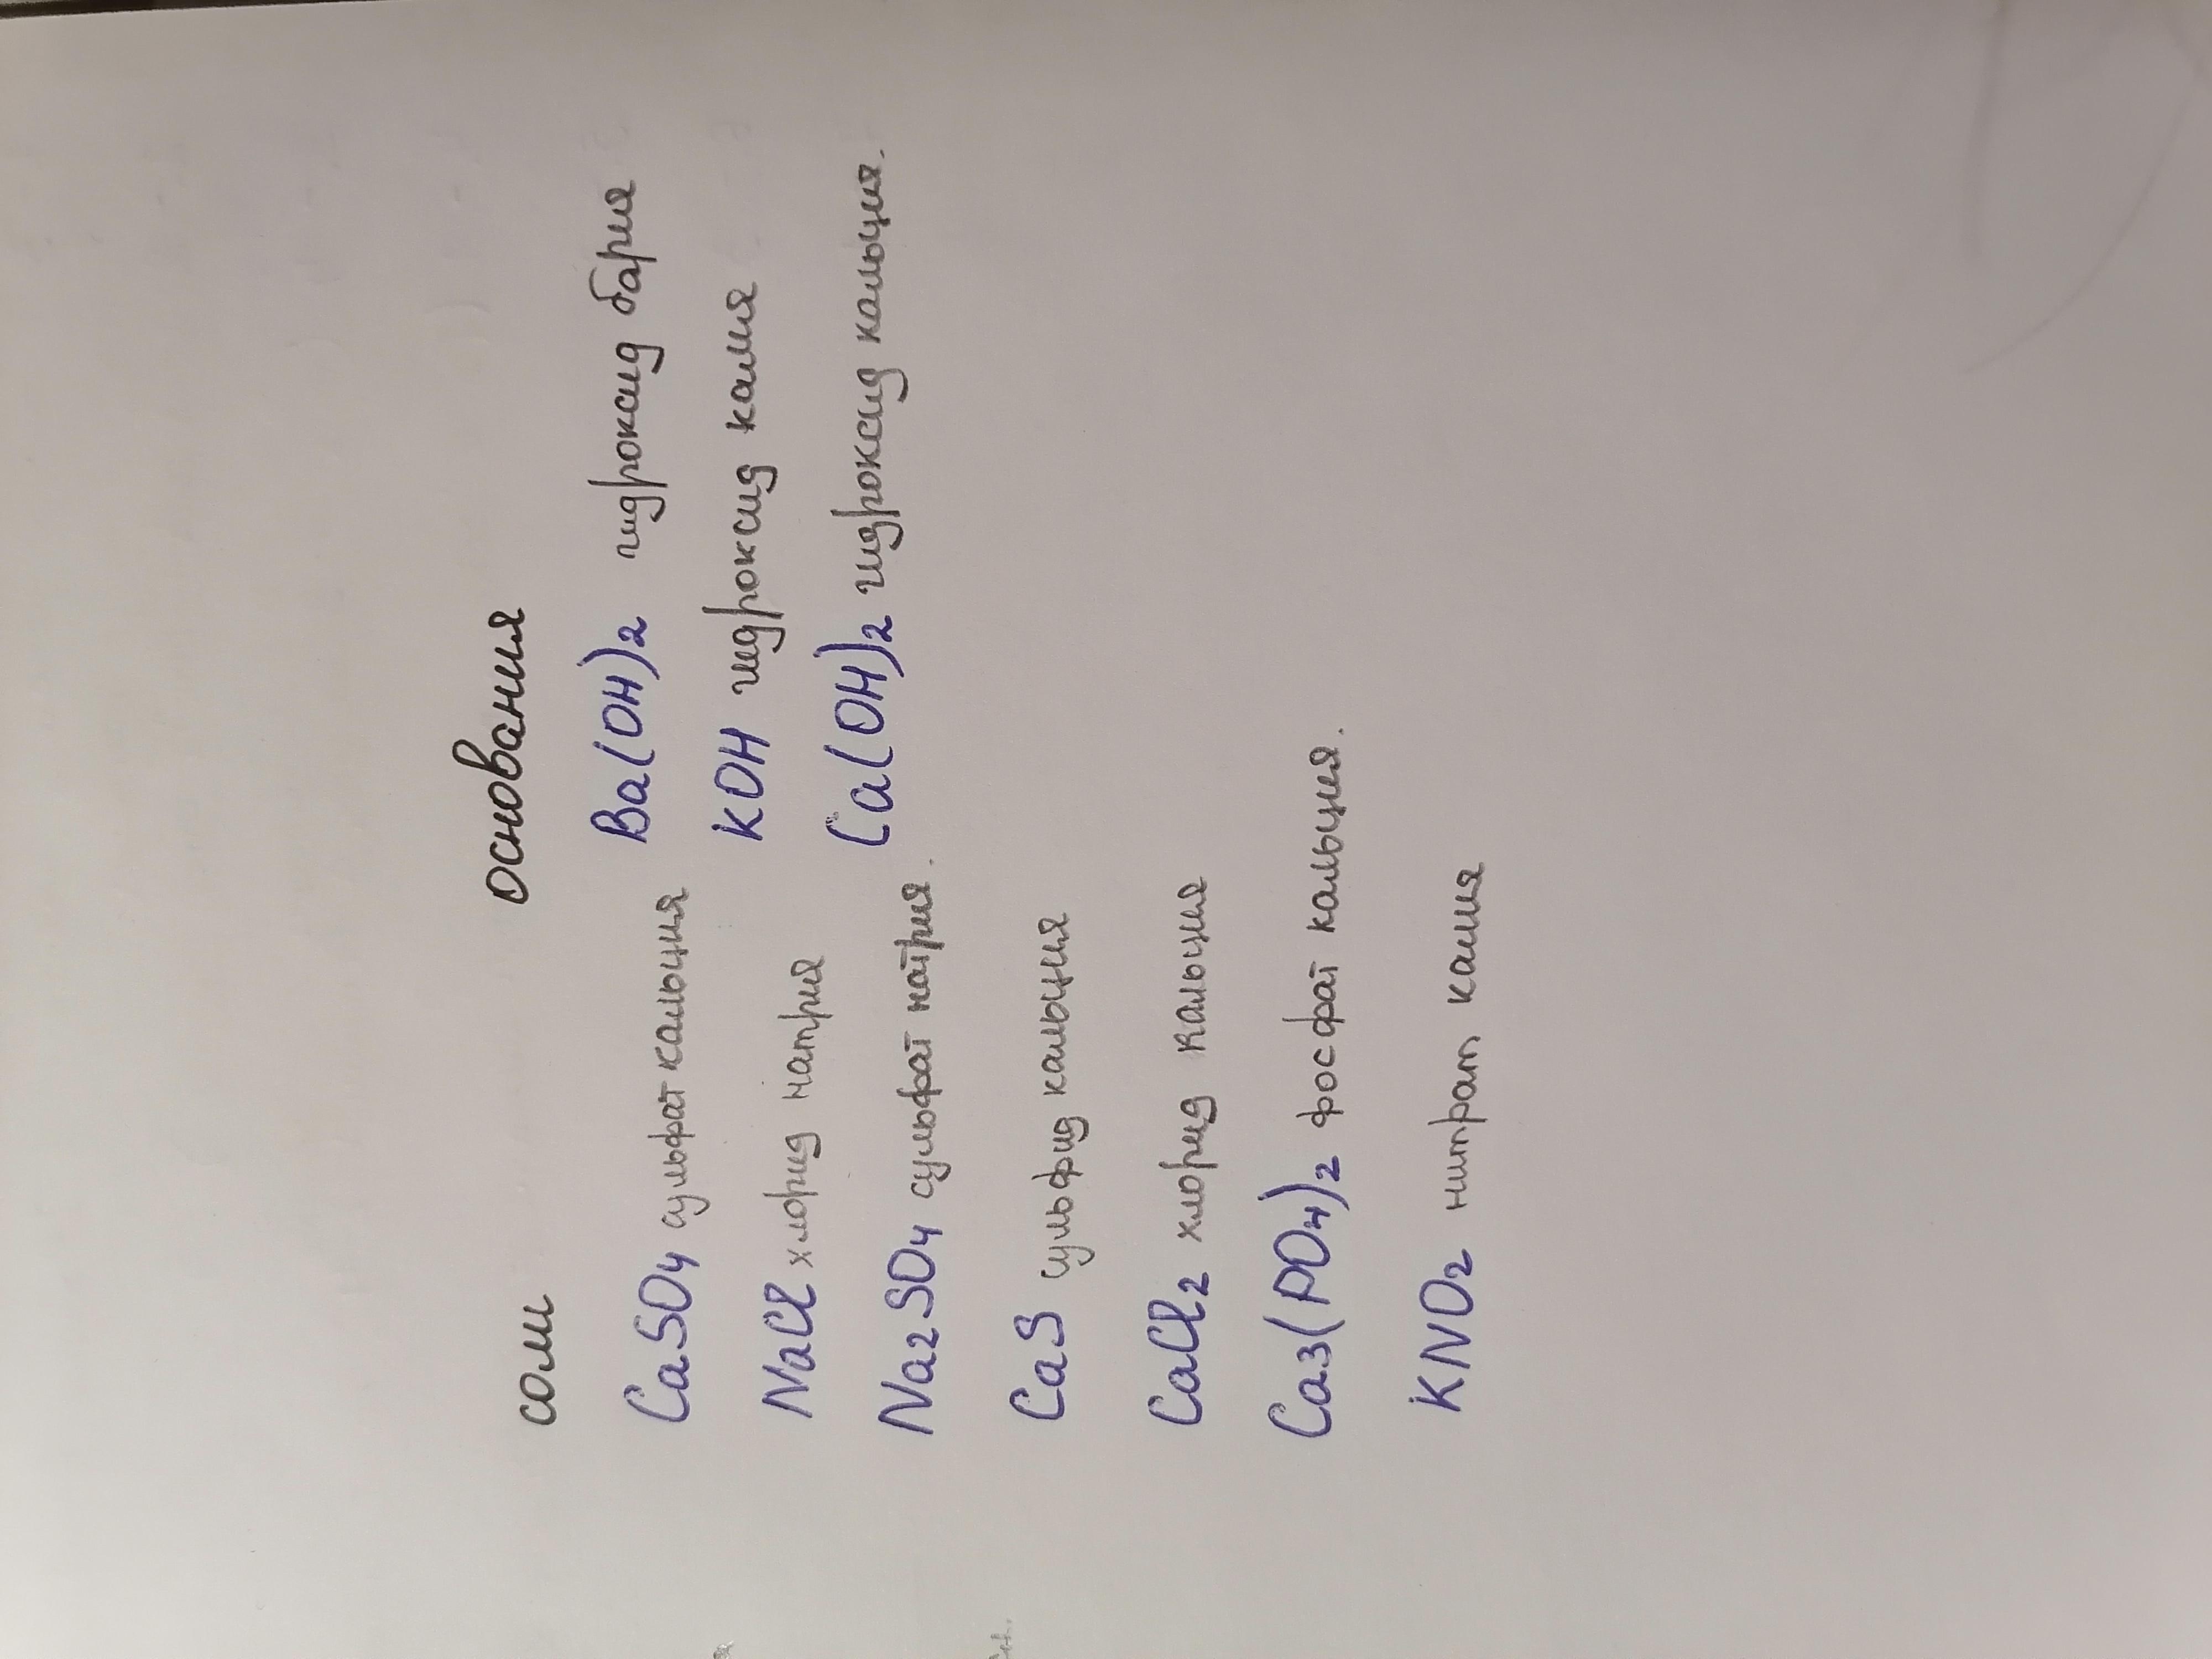 соли
CaSO4 сульфат кальция
NaCl хлорид натрия
Na2SO4 сульфат натрия.
CaS сульфид кальция
CaCl2 хлорид кальция
Ca3(PO4)2 фосфат кальция.
KNO2 нитрат калия
основания
Ba(OH)2 гидроксид бария
KOH гидроксид калия
Ca(OH)2 гидроксид кальция.